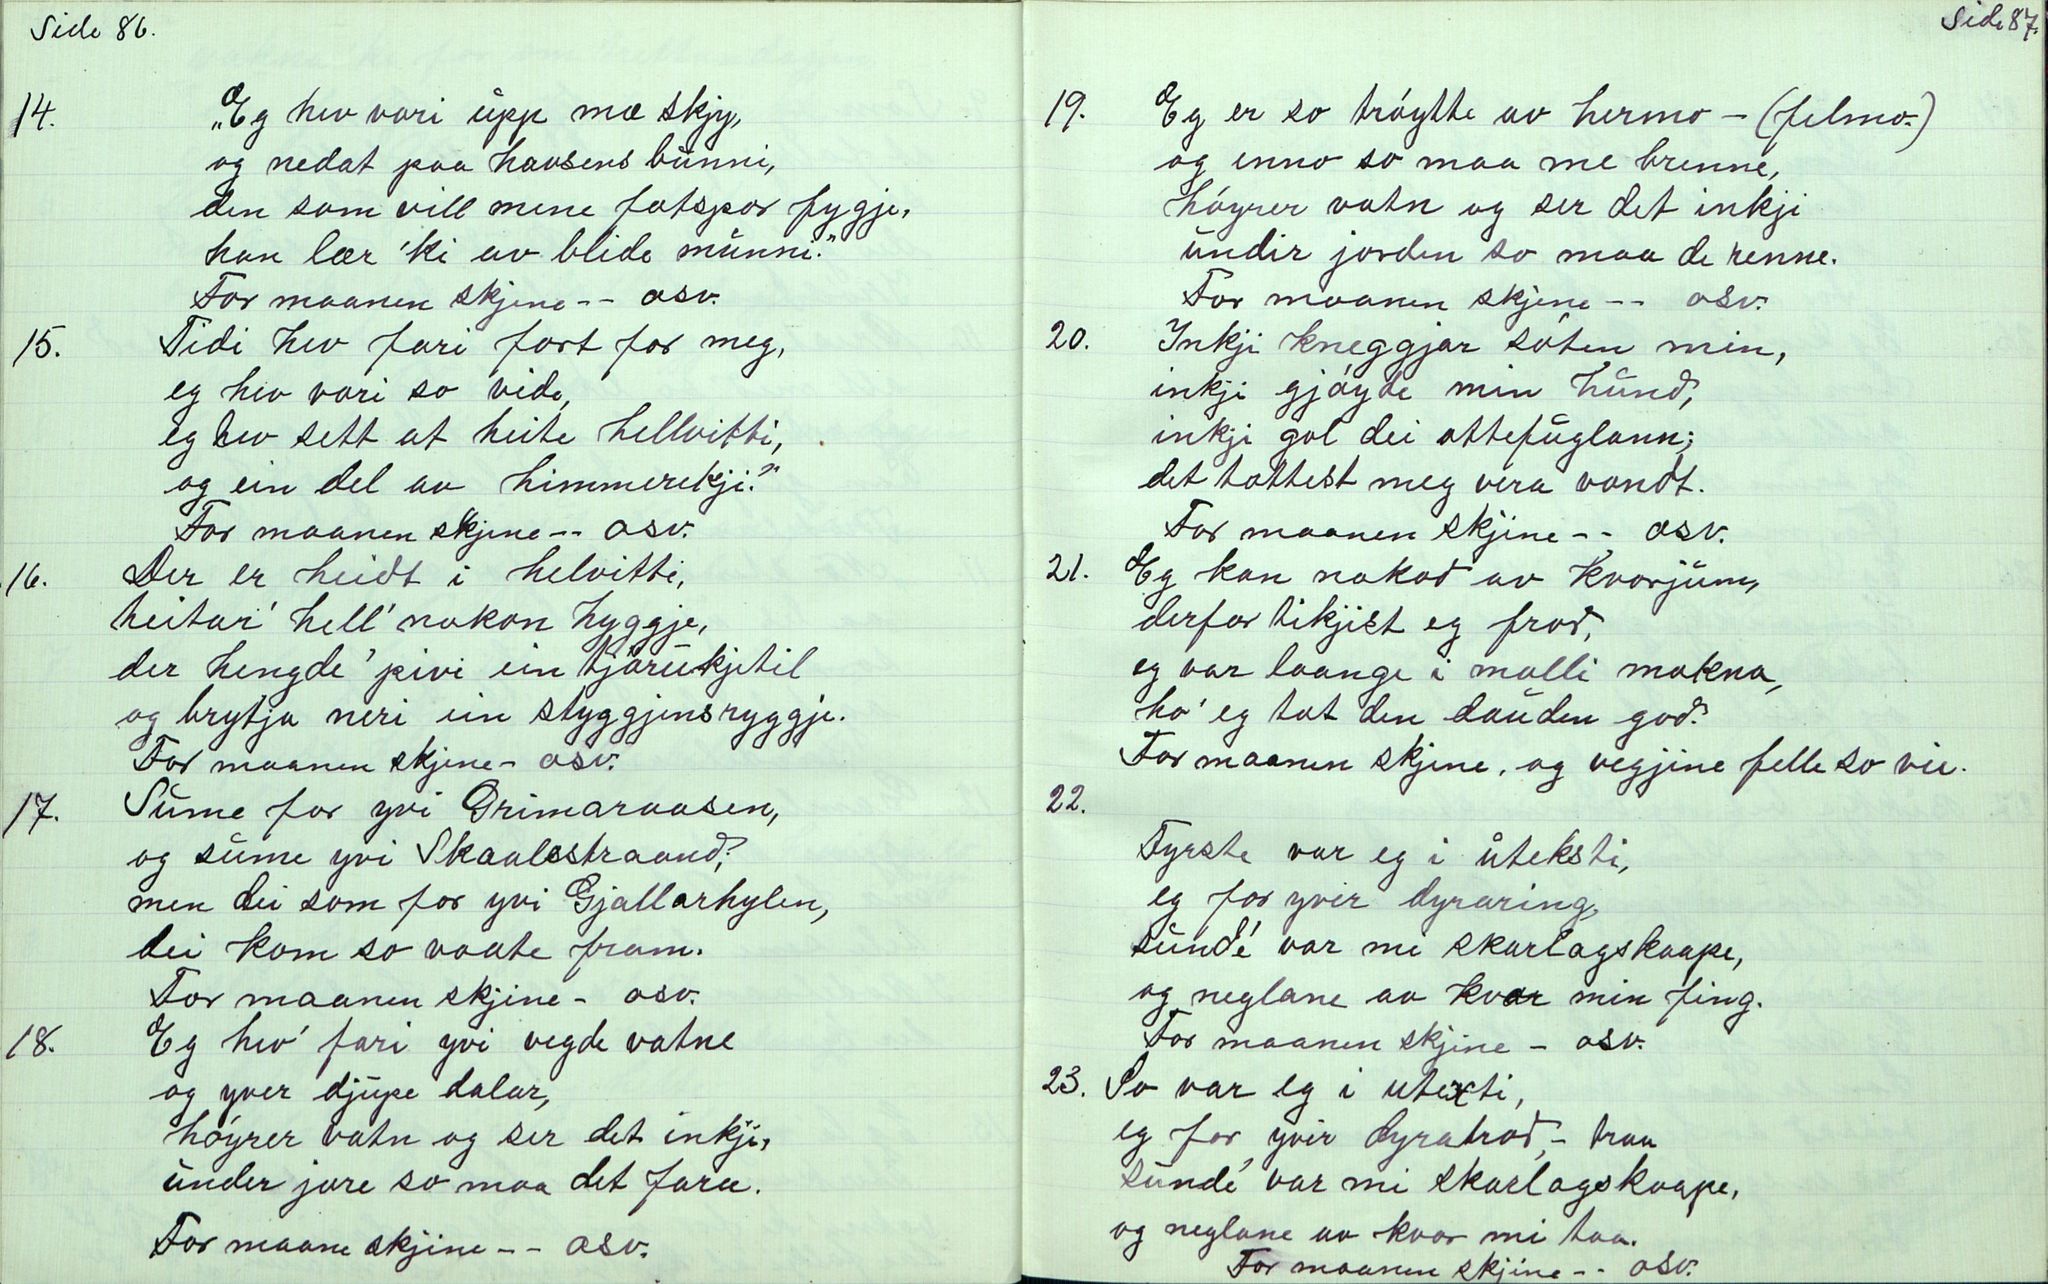 Side 86.
14. „Eg hev vari upp mæ skjy,
og nedat paa havsens bunni,
den som vill mene fotspor fygje,
han lær 'ki av blide munni."
For maanen skjine -- osv.
15. Tidi hev fari fort for meg,
eg hev vari so vide,
eg hev sett at heite hellvitti,
og ein del av himmerekji."
For maanen skjine -- osv.
16. Der er heidt i helvitti,
heitar' hell' nokon hyggje,
der hengde 'pivi ein tjørukjetil
og brytja neri ein styggjensryggje.
For maanen skjine - osv.
17. Sume for yvi Grimaraasen,
og sume yvi Skaalsstraand;
men dei som for yvi Gjallarhylen,
dei kom so vaate fram.
For maanen skjine - osv.
18. Eg hev' fari yvi vegde vatne
og yver djupe dalar,
høyrer vatn og ser det inkji,
under jore so maa det fara.
For maane skjine -- osv.
Side 87.
19. Eg er so trøytte av hermo - (felmo.)
og enno so maa me brenne,
høyrer vatn og ser det inkji
undir jorden so maa de renne.
For maanen skjine -- osv.
20. Inkji kneggjar soten min,
inkji gjøyde min hund,
inkji gol dei ottefuglann;
det tottest meg vera vondt.
For maanen skjine -- osv.
21. Eg kan nokod av kvorjum,
derfor tikjist eg frod,
eg var laange i molli mokna,
ho' eg tat den dauden god."
For maanen skjine, og vegjine felle so vie.
22.
Fyrste var eg i uteksti,
eg for yvir dyraring,
sunde' var me skarlagskaape,
og neglane av kvar min fing.
For maanen skjine - osv.
23. So var eg i utexti,
eg for yvir dyratrod, - traa
sunde' var mi skarlagskaape,
og neglane av kvor mi taa.
For maanen skjine -- osv.